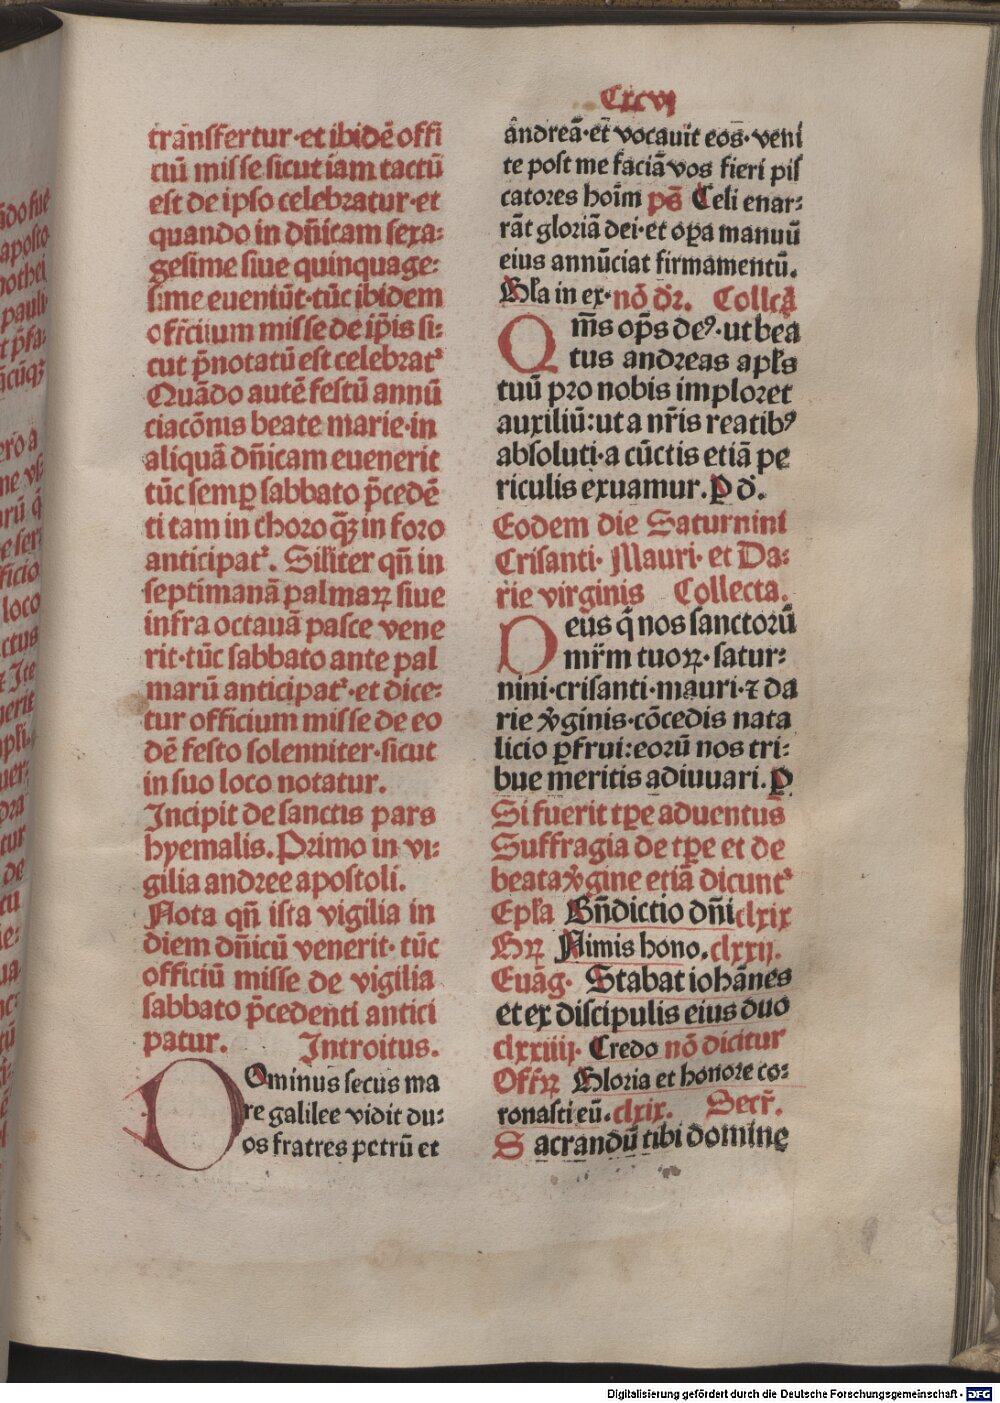 Cxcvj
transfertur·et ibidē offi
ciū misse sicut iam tactū
est de ipso celebratur·et
quando in dn̄icam sexa⸗
gesime siue quinquage⸗
sime eueniūt·tūc ibidem
officium misse de ip̄is si⸗
cut p̄notatū est celebratꝰ
Quādo autē festū annū
ciacōnis beate marie·in
aliquā dn̄icam euenerit
tūc semꝑ sabbato p̄cedē
ti tam in choro qꝫ in foro
anticipatꝰ. Sil̄iter qn̄ in
septimanā palmaꝝ siue
infra octauā pasce vene
rit·tūc sabbato ante pal
marū anticipatꝰ·et dice⸗
tur officium misse de eo
dē festo solenniter·sicut
in suo loco notatur.
Incipit de sanctis pars
hyemalis. Primo in vi⸗
gilia andree apostoli.
Nota qn̄ ista vigilia in
diem dn̄icū venerit· tūc
officiū misse de vigilia
sabbato p̄cedenti antici
patur. Introitus.
DOminus secus ma
re galilee vidit du⸗
os fratres petrū et
andreā·et vocauit eos·veni
te post me faciā vos fieri pis
catores hoīm ps̄ Celi enar⸗
rāt gloriā dei·et oꝑa manuū
eius annūciat firmamentū.
Gl̄a in ex·nō dr̄. Collcā
Qm̄s op̄s deꝰ·ut bea
tus andreas apl̄s
tuū pro nobis imploret
auxiliū:ut a nr̄is reatibꝰ
absoluti·a cūctis etiā pe
riculis exuamur. P d̄.
Eodem die Saturnini
Crisanti· Mauri· et Da⸗
rie virginis Collecta.
Deus q̄ nos sanctorū
mr̄m tuoꝝ·satur⸗
nini·crisanti·mauri·⁊ da
rie v̓ginis·cōcedis nata
licio ꝑfrui:eorū nos tri⸗
bue meritis adiuuari. P
Si fuerit tꝑe aduentus
Suffragia de tꝑe et de
beata v̓gine etiā dicuntꝰ
Epl̄a Bn̄dictio dn̄i clxix
Gꝝ Nimis hono. clxxij.
Euāg· Stabat iohānes
et ex discipulis eius duo
clxxiiij. Credo nō dicitur
Offꝝ Gloria et honore co⸗
ronasti eū. clxix. Secr̄.
Sacrandū tibi domine
Digitalisierung gefördert durch die Deutsche Forschungsgemeinschaft - DFG